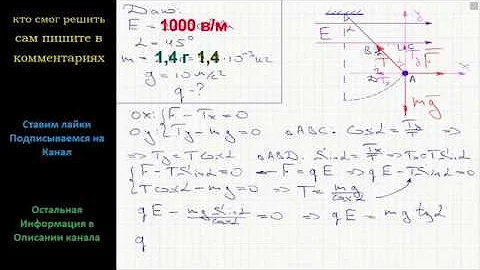 кто смог решить
сам пишите в
комментариях
Ставим лайки
Подписываемся на
Канал
Остальная
Информация в
Описании канала
Дано:
E - 1000 в/м
α = 45°
m = 1,4 г 1,4 · 10⁻³ кг
g = 10 м/с²
q - ?
E
α
B
C
T
Ty
F
Tx
D
A
x
mg
ox: {F - Tx = 0
oy: {Ty - mg = 0 △ABC. Cosα = Ty/T
=> Ty = T cosα △ABD. Sinα = Tx/T => Tx = T Sinα
{F - T Sinα = 0 F = qE => qE - T Sinα = 0
{T cosα - mg = 0 => T = mg/cosα
qE - mg Sinα/cosα = 0 => qE = mg tgα
q